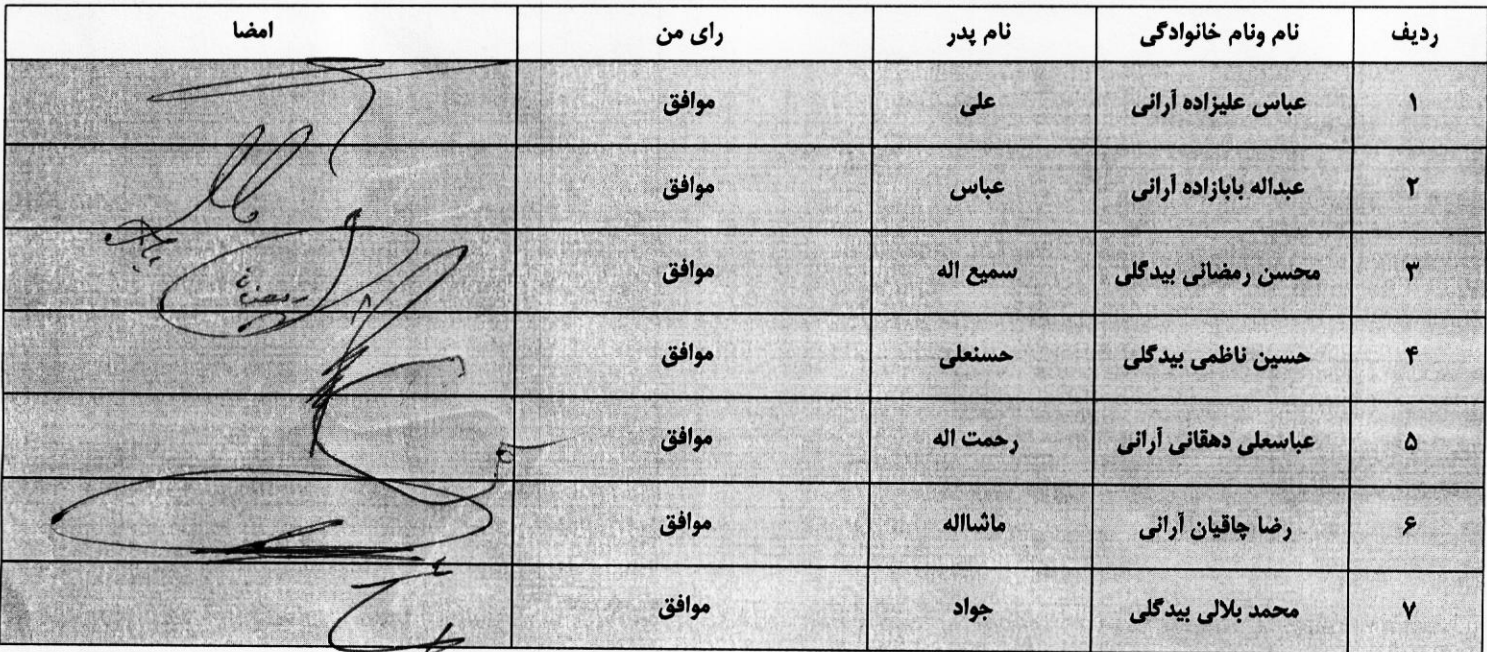 ردیف نام ونام خانوادگی نام پدر رای من امضا
۱ عباس علیزاده آرانی علی موافق
۲ عبداله بابازاده آرانی عباس موافق
۳ محسن رمضانی بیدگلی سمیع اله موافق
۴ حسین ناظمی بیدگلی حسنعلی موافق
۵ عباسعلی دهقانی آرانی رحمت اله موافق
۶ رضا چاقیان آرانی ماشااله موافق
۷ محمد بلالی بیدگلی جواد موافق